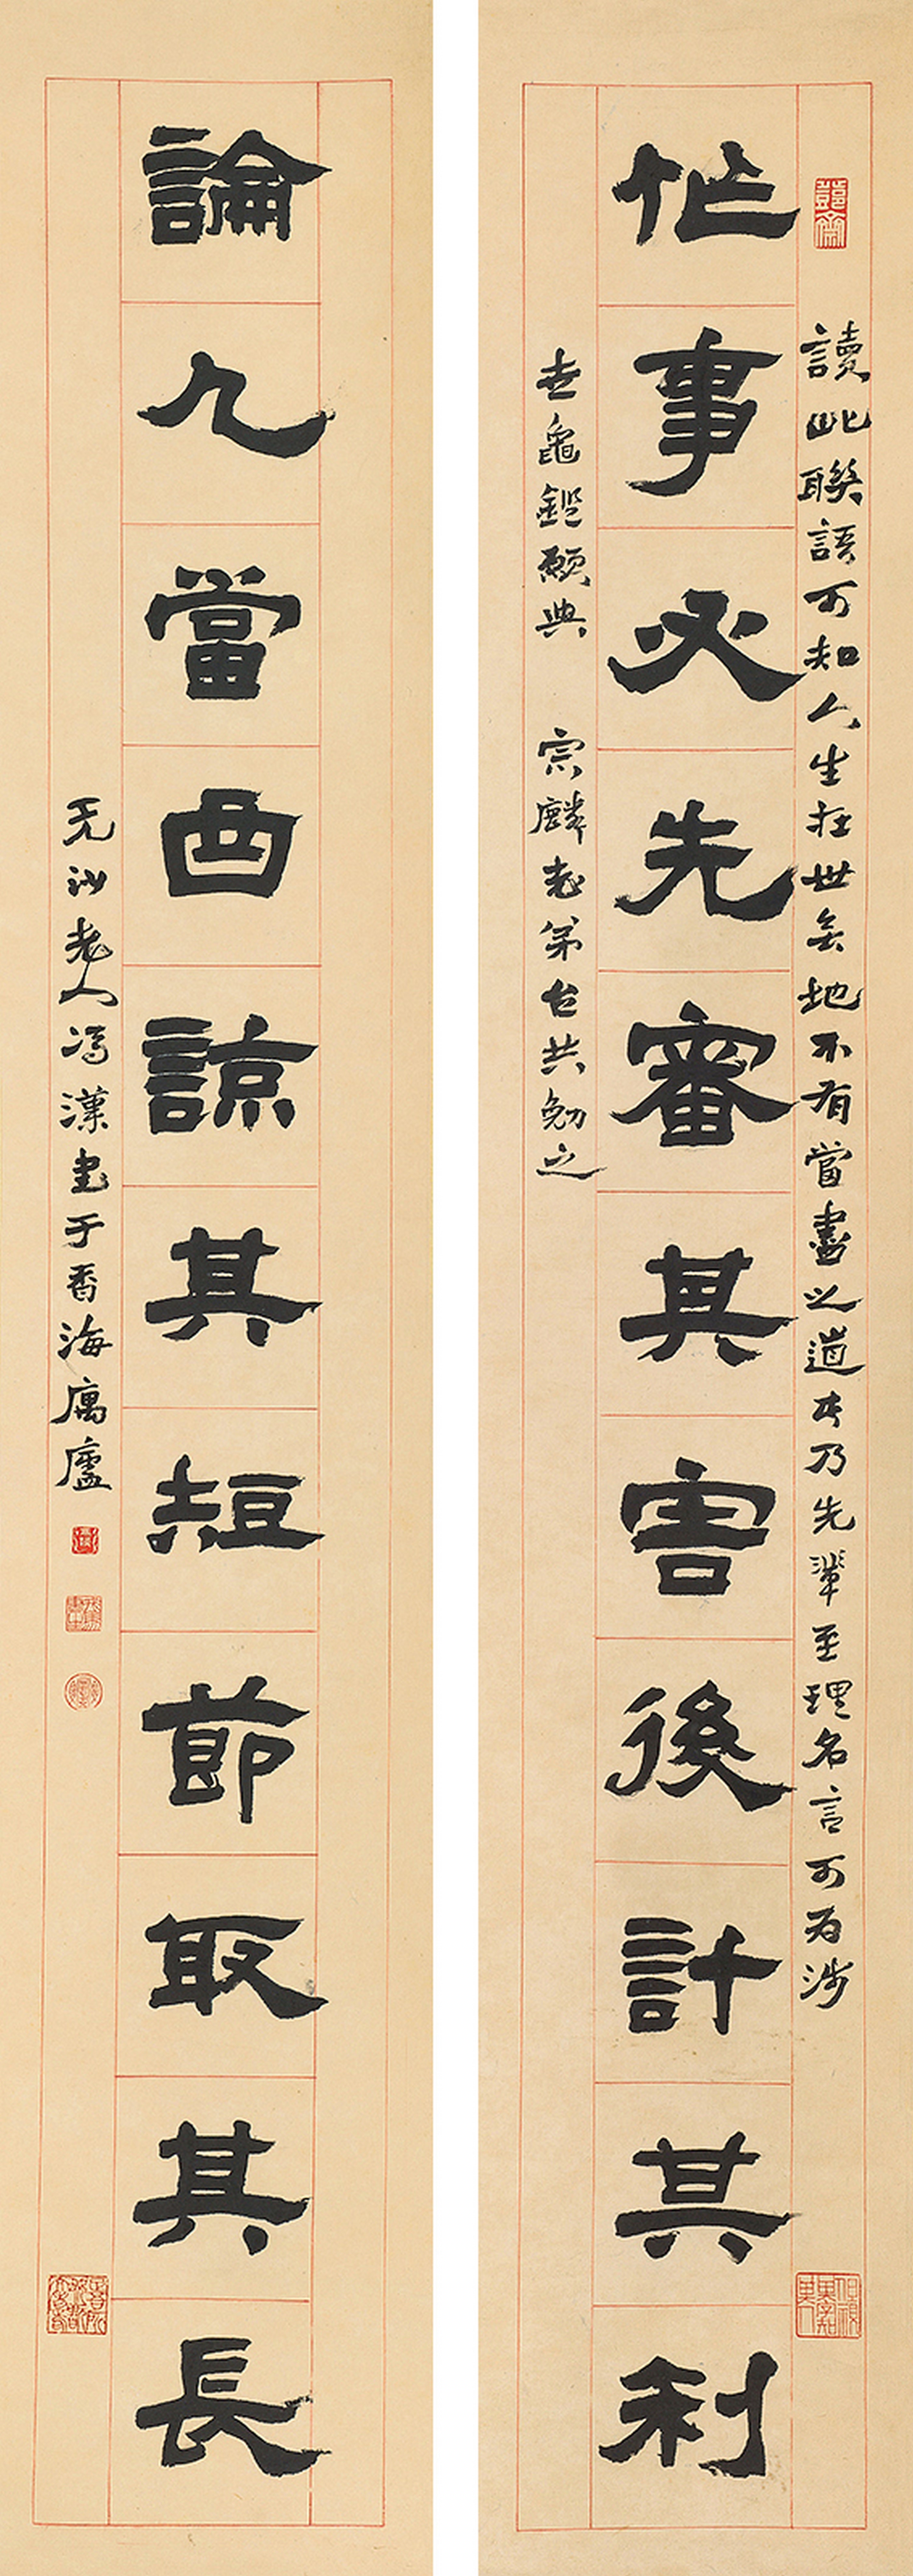 讀此聯語可知人生在世無地不有當盡之道此乃先輩至理名言可為涉
作事必先審其害後計其利
世龜鑑願與 宗麟老弟台共勉之
論人當面諒其短節取其長
无沙老人馮漢書于香海庽廬